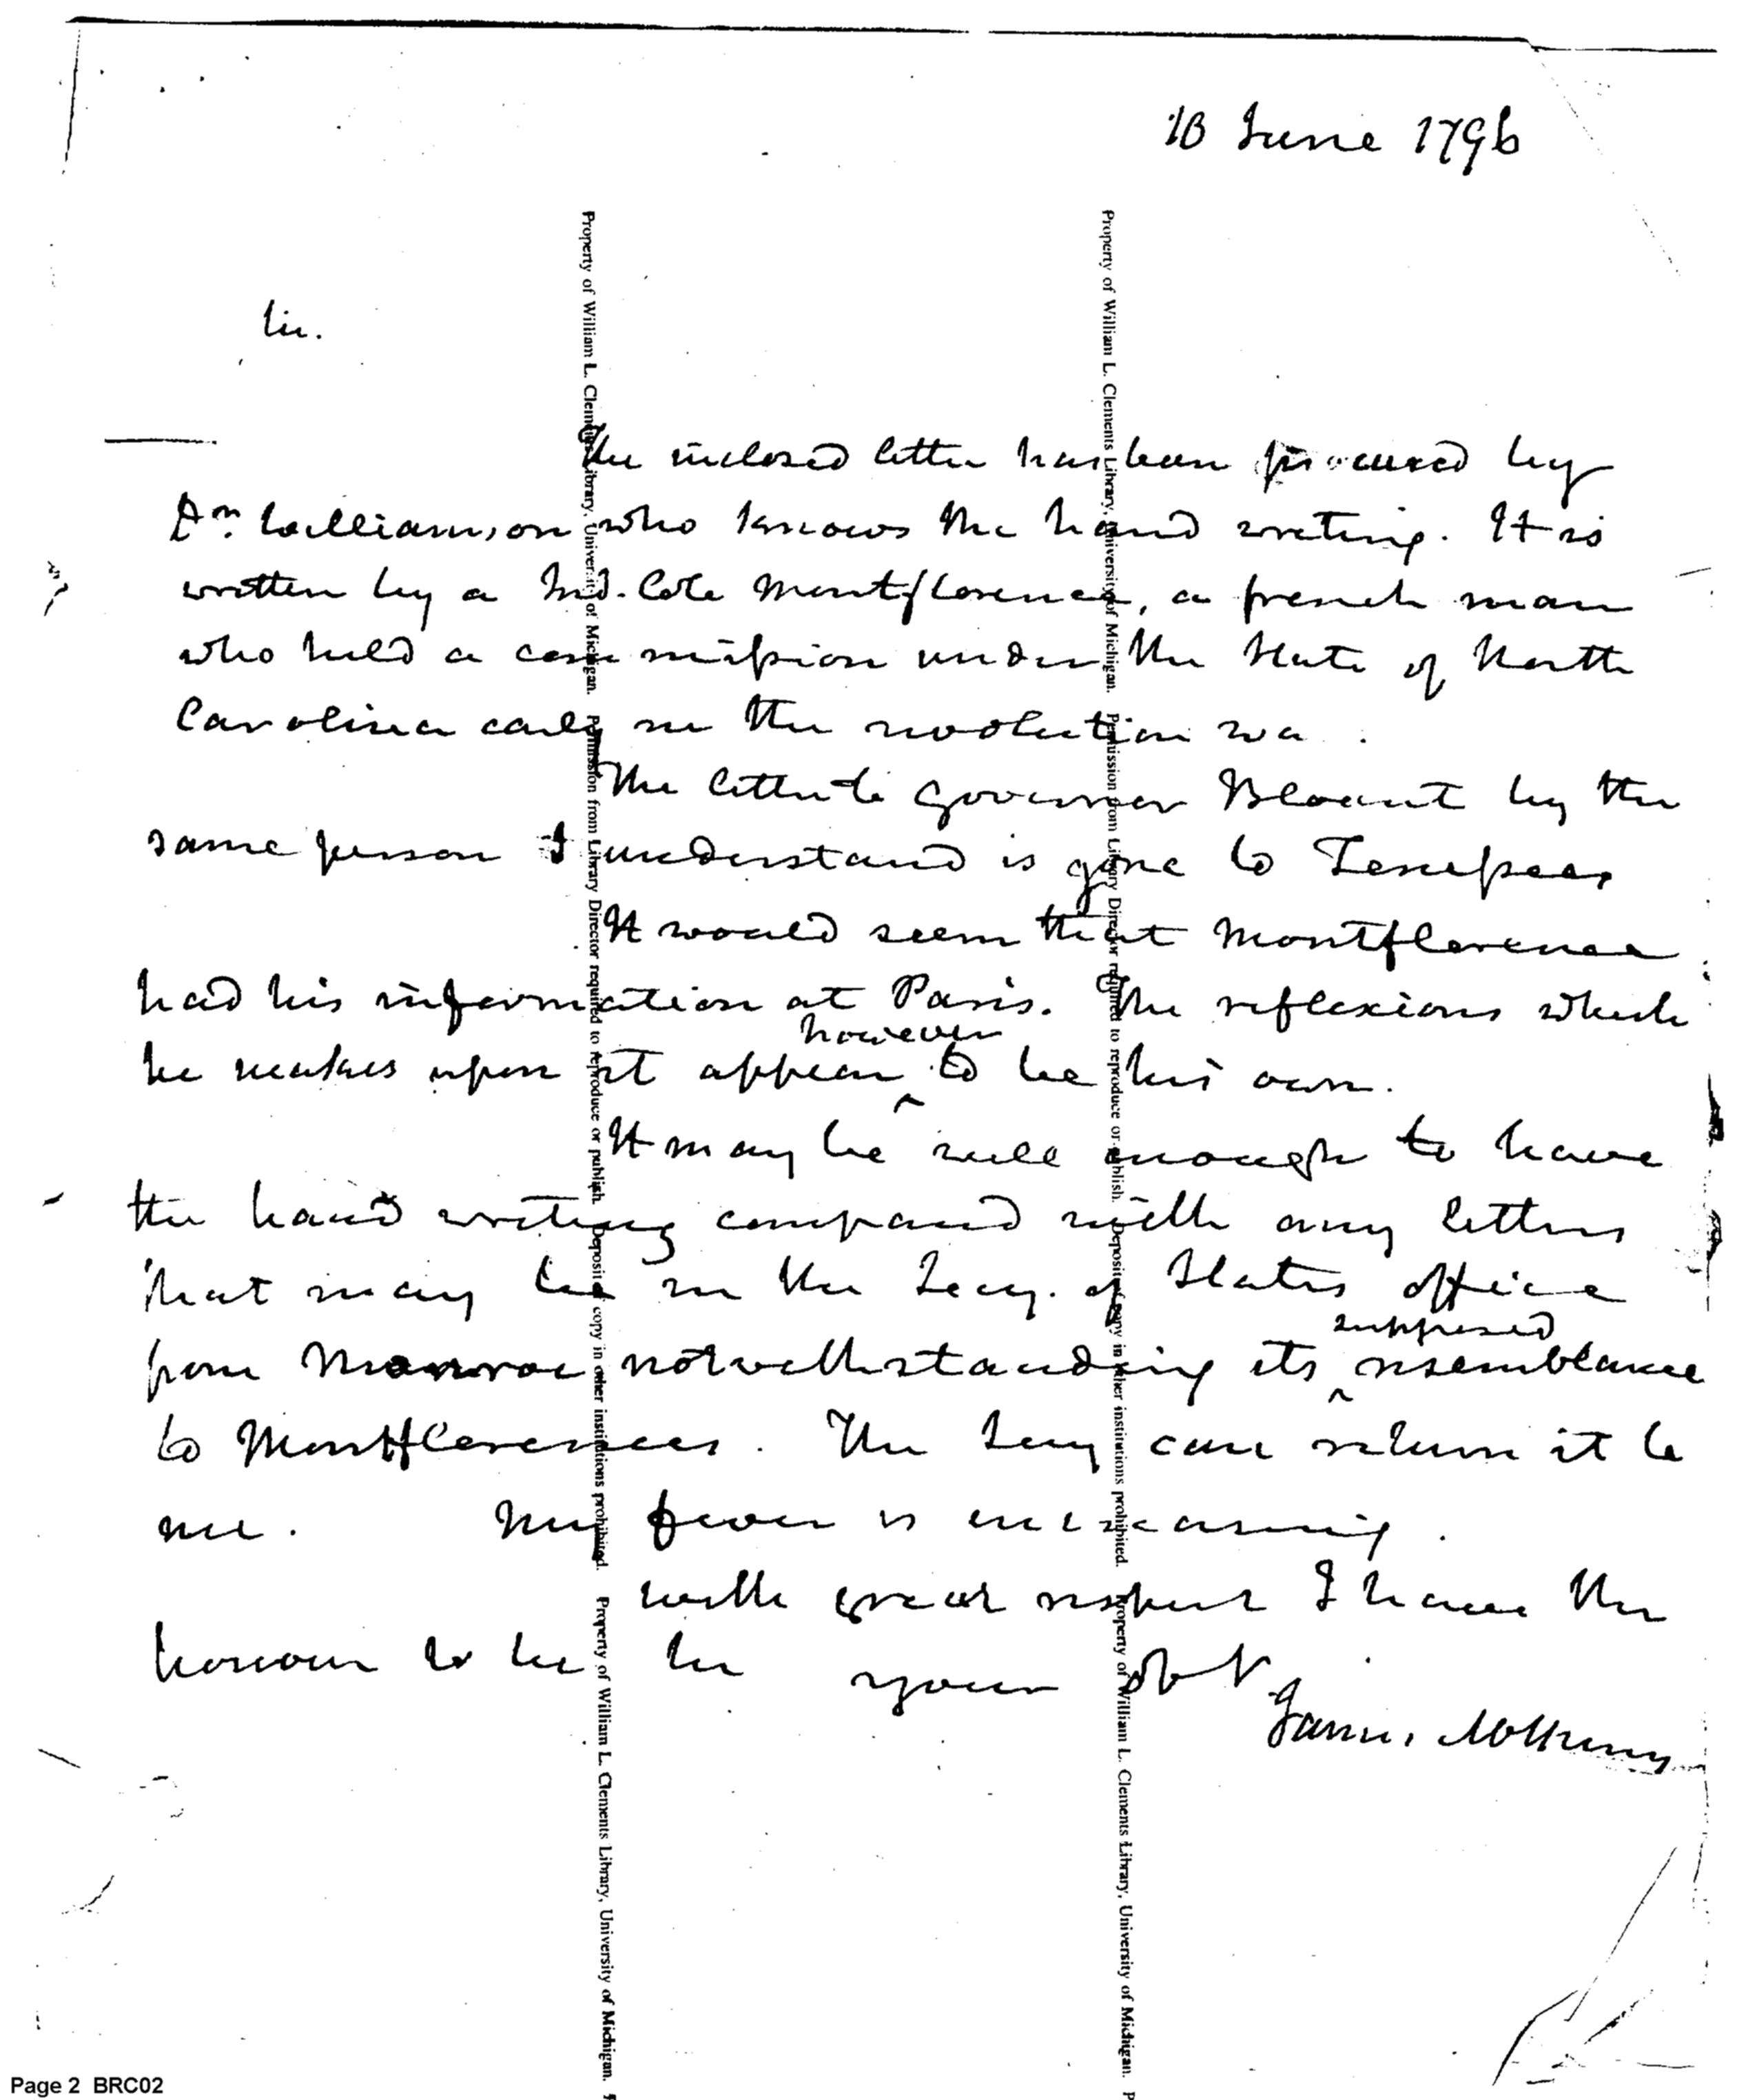 10 June 1796
Sir.
The inclosed letter has been procured by
Dr. Williamson who knows the hand writing. It is
written by a Md. Cole Montflorence, a french man
who held a commission under the State of North
Carolina early in the revolution wa .
The letter to governor Blount by the
same person I understand is gone to Tenessee
It would seem that Montflorence
had his information at Paris. The reflexions which
he makes upon it appear however to be his own.
It may be well enough to have
the hand writing compared with any letters
that may be in the Secy. of States office
from Monroe notwithstanding its supposed resemblance
to Montflorences. The Secy can return it to
me. My fever is increasing.
with great respect I have the
honour to be Sir your obt
James McHenry
Property of William L. Clements Library, University of Michigan. Permission from Library Director required to reproduce or publish. Deposit of copy in other institutions prohibited. Property of William L. Clements Library, University of Michigan.
Property of William L. Clements Library, University of Michigan. Permission from Library Director required to reproduce or publish. Deposit of copy in other institutions prohibited. Property of William L. Clements Library, University of Michigan. P
Page 2 BRC02